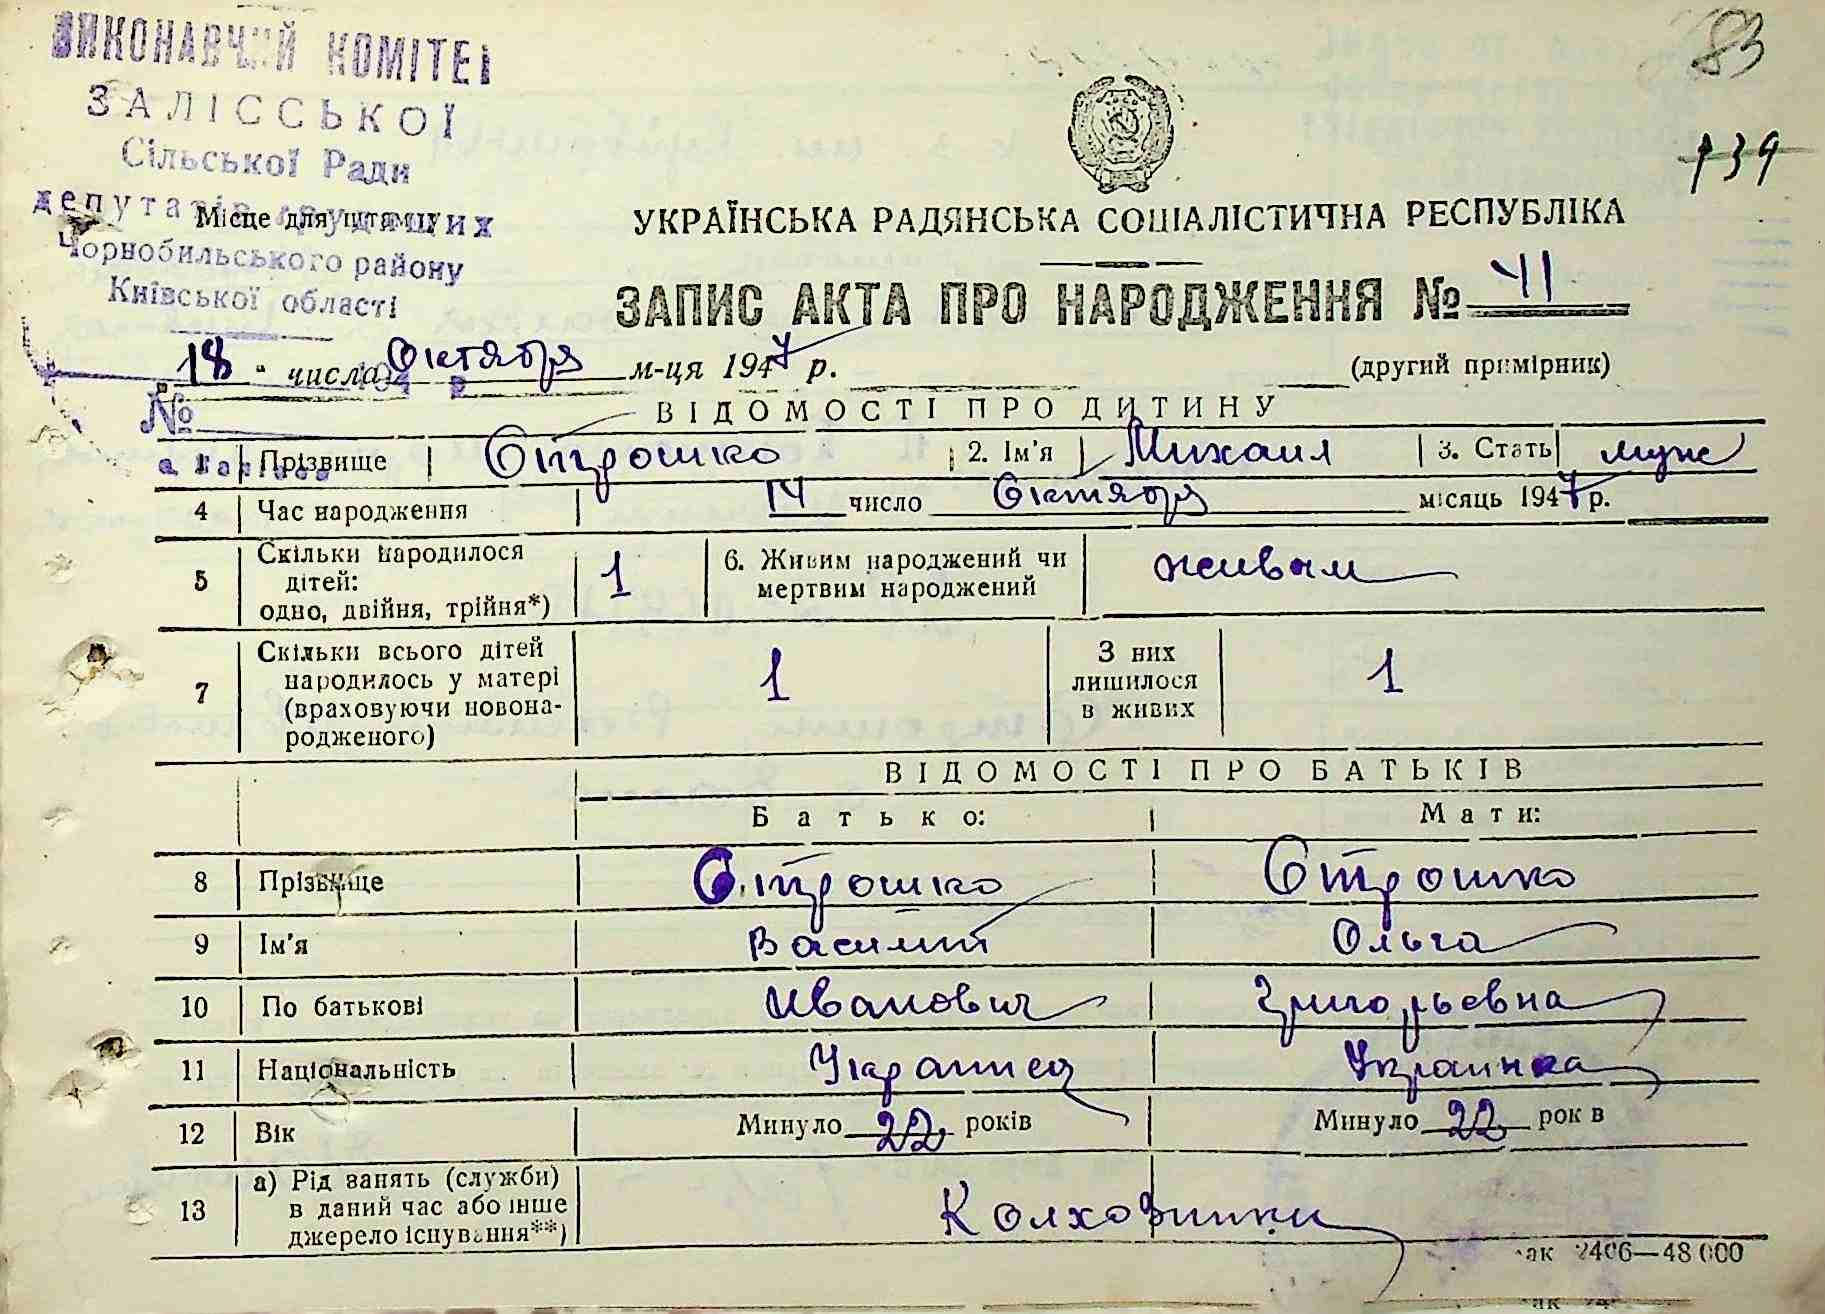 ВИКОНАВЧИЙ КОМІТЕТ
ЗАЛІССЬКОЇ
Сільської Ради
депутатів трудящих
Чорнобильського району
Київської області
Місце для штампу
83
739
УКРАЇНСЬКА РАДЯНСЬКА СОЦІАЛІСТИЧНА РЕСПУБЛІКА
ЗАПИС АКТА ПРО НАРОДЖЕННЯ № 41
18 " числа Октября м-ця 1947 р.
(другий примірник)
№
ВІДОМОСТІ ПРО ДИТИНУ
1 Прізвище Отрошко 2. Ім'я Михаил 3. Стать муж
4 Час народження 14 число Октября місяць 1947 р.
5 Скільки народилося дітей: одно, двійня, трійня*) 1 6. Живим народжений чи мертвим народжений живым
7 Скільки всього дітей народилось у матері (враховуючи новонародженого) 1 З них лишилося в живих 1
ВІДОМОСТІ ПРО БАТЬКІВ
Батько: Мати:
8 Прізвище Отрошко Отрошко
9 Ім'я Василий Ольга
10 По батькові Иванович Григорьевна
11 Національність Украинец Украинка
12 Вік Минуло 22 років Минуло 22 рок в
13 а) Рід занять (служби) в даний час або інше джерело існування**) Колхозники
ак 2406—48 000